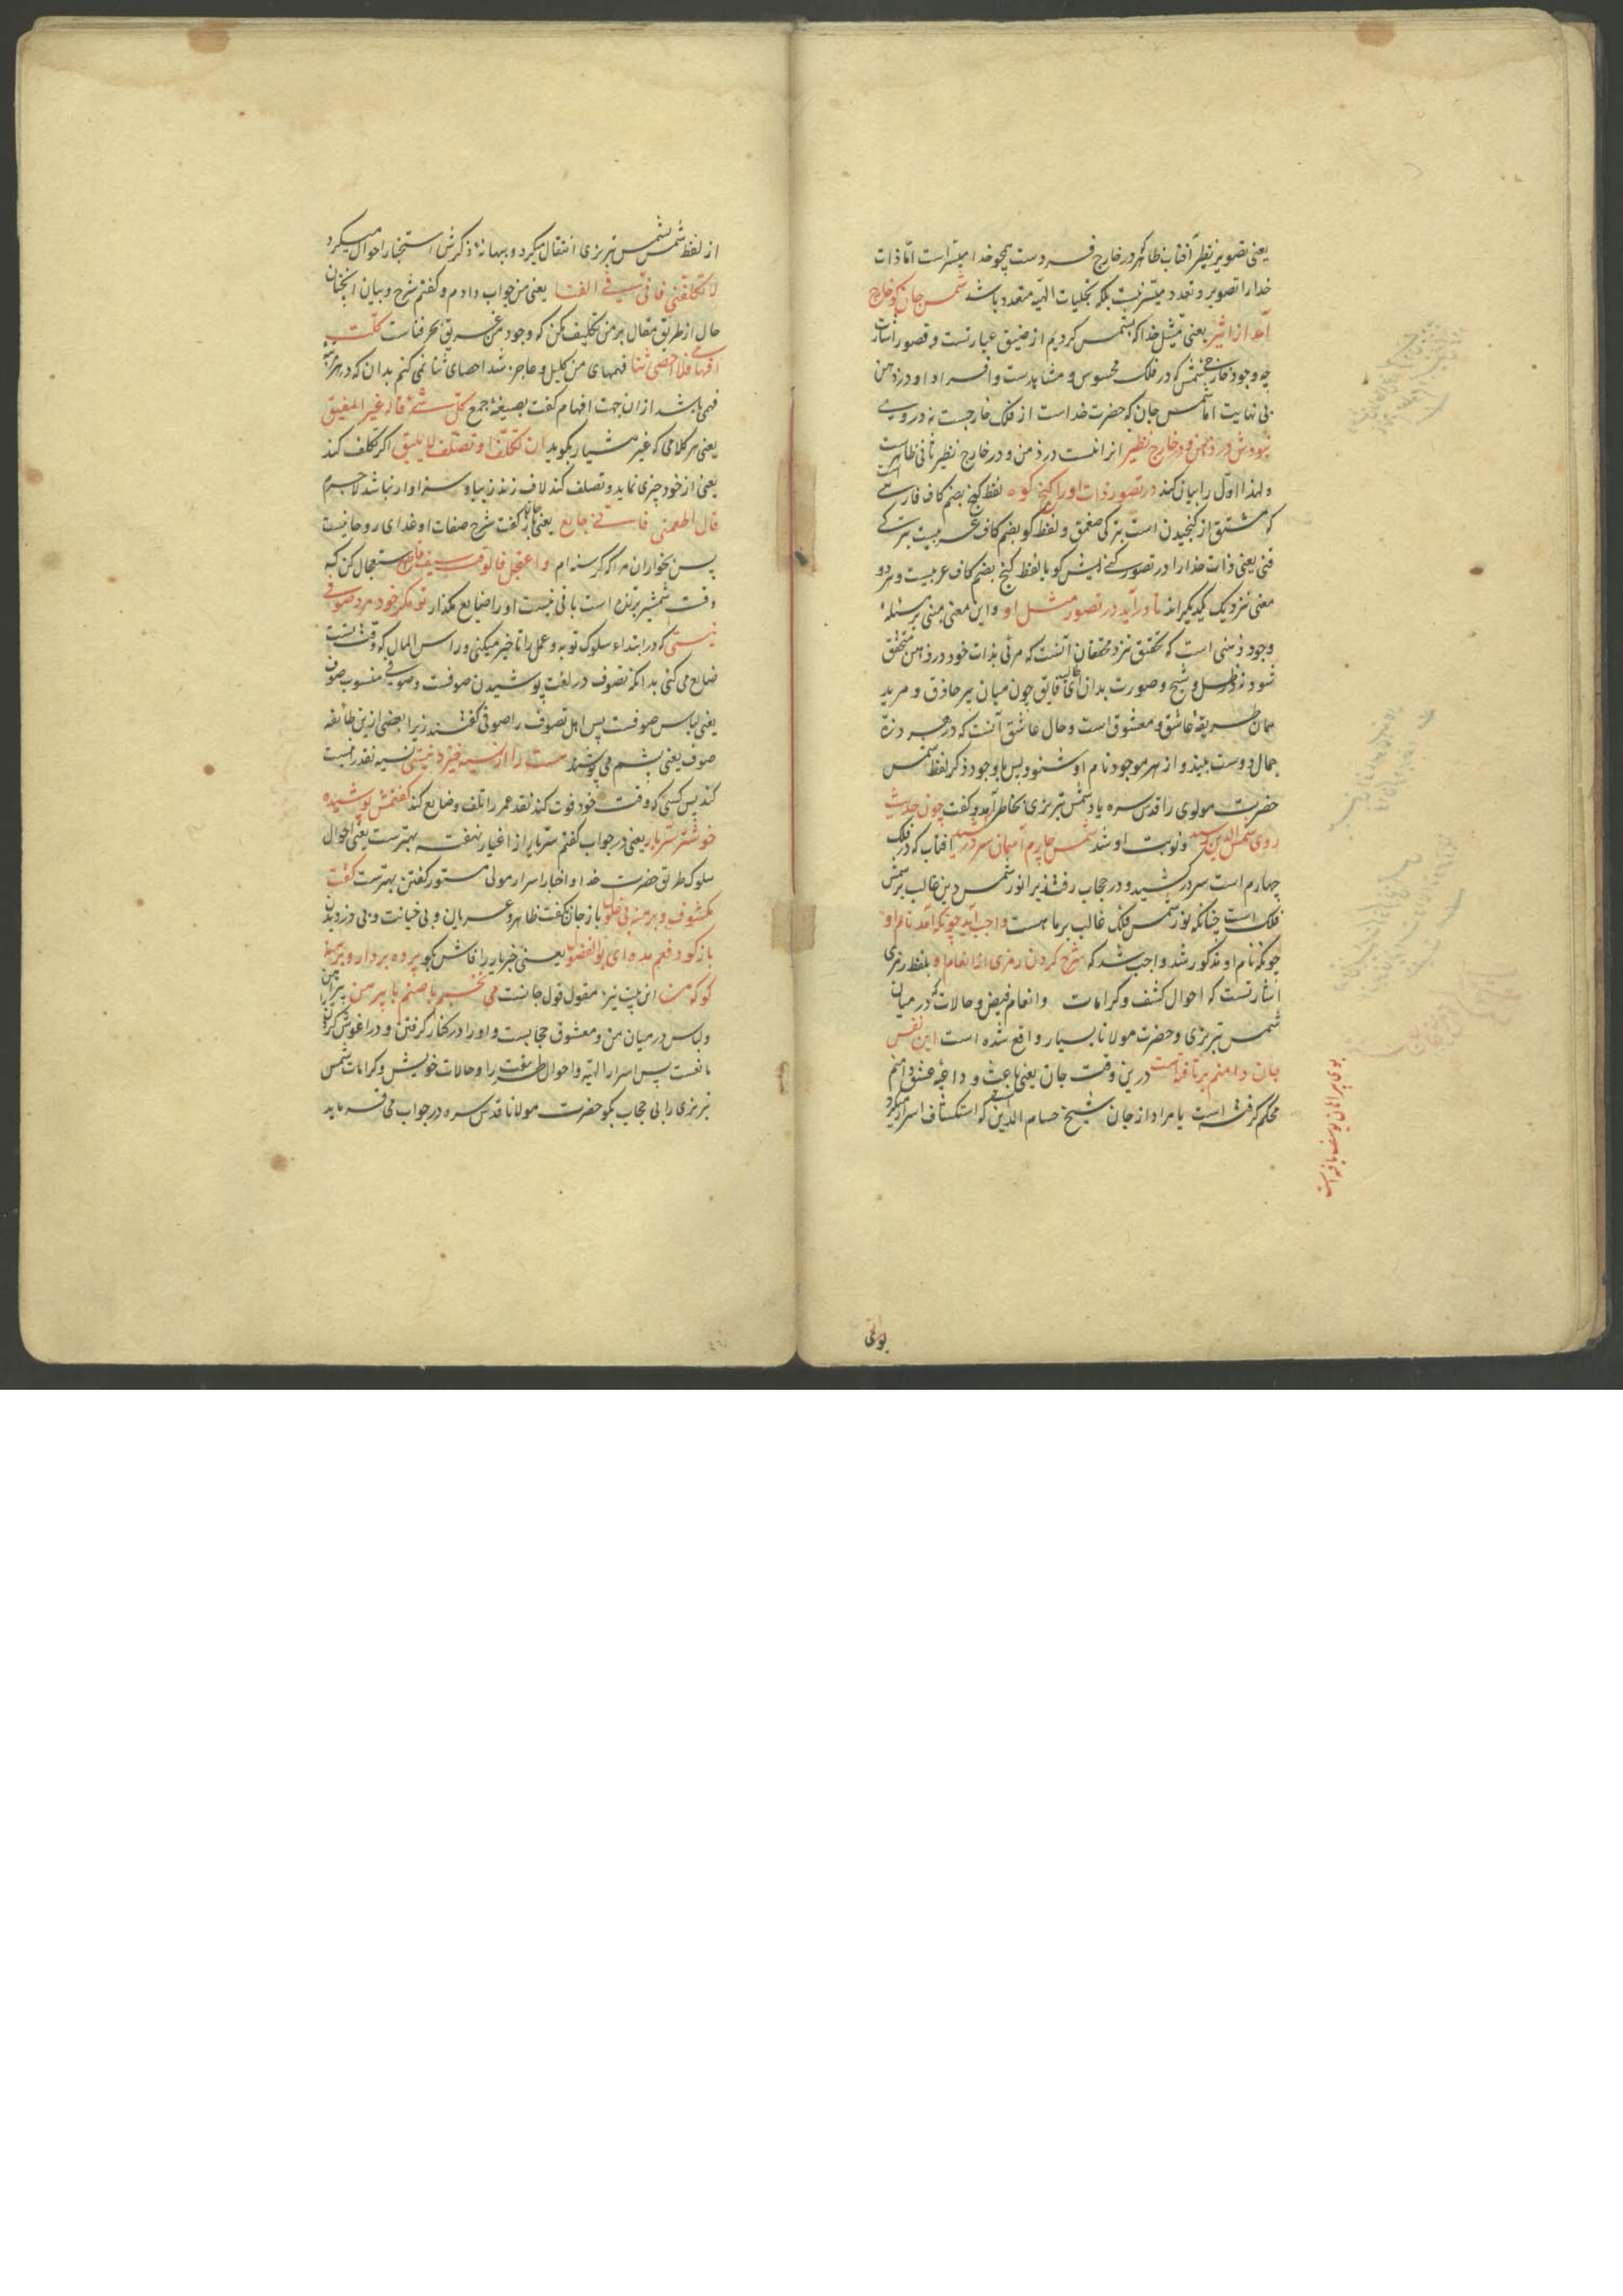 یعنی تصویر نظیر آفتاب ظاهر در خارج فردست همچو خدا میسّر است امّا ذات
خدا را تصویر و تعدد میسّر نیست بلکه تجلیات الهیّه متعدد باشد شمس جان کو خارج
آمد از اثیر یعنی تمثیل خدا که بشمس کردیم از ضیق عبارتست و قصور اشارت
چه وجود خارجی شمس که در فلک محسوس و مشاهدست و افراد او در ذهن
بی نهایت اما شمس جان که حضرت خداست از فلک خارجست نه در وی
نبودش در ذهن و در خارج نظیر انرا نیست در ذهن و در خارج نظیر نافی ظاهرست
و لهذا اوّل را بیان کند در تصور ذات او را گنج کو لفظ گنج بضم کاف فارسی است
که مشتق از گنجیدن است بترکی صغمق و لفظ کو بضم کاف عربیست بترکی
قنی یعنی ذات خدا را در تصور گنجایش کو یا لفظ گنج بضم کاف عربیست و هر دو
معنی نزدیک یکدیگراند تا در آید در تصور مثل او و این معنی مبنی بر مسئلۀ
وجود ذهنی است که تحقیق نزد محققان آنست که مرئی بذات خود در ذهن متحقق
شود نه ظل و شبح و صورت بدان ای چون میان پیر حاذق و مرید
همان طریقه عاشق و معشوق است و حال عاشق آنست که در هر ذرّه
جمال دوست بیند و از هر موجود نام او شنود پس با وجود ذکر لفظ شمس
حضرت مولوی را قدس سره یاد شمس تبریزی بخاطر آمد و گفت چون حدیث
روی شمس الدین رسید و نوبت او شد شمس چارم آسمان سر در کشید افتاب که در فلک
چهارم است سر در کشید و در حجاب رفت زیرا نور شمس دین غالب بر شمس
فلک است چنانکه نور شمس فلک غالب بر ما هست واجب آید چونکه آمد نام او
چونکه نام او مذکور شد واجب شد که شرح کردن رمزی از انعام او بلفظ رمزی
اشارتست که احوال کشف و کرامات و انعام فیض و حالات که در میان
شمس تبریزی و حضرت مولانا بسیار واقع شده است این نفس
جان دامنم بر تافته است درین وقت جان یعنی باعث و داعیه عشق دامنم
محکم گرفته است یا مراد از جان شیخ حسام الدین که استکشاف اسرار میکرد
از لفظ شمس بشمس تبریزی انتقال میکرد و ببهانۀ ذکرش استخبار احوال میکرد
لا تکلّفنی فانّی فی الفنا یعنی من جواب دادم و گفتم شرح و بیان انچنان
حال از طریق مقال بر من تکلیف مکن که وجود من غریق بحر فناست کلّت
افهامی فلا احصی ثنا فهمهای من کلیل و عاجز شد احصای ثنا نمی کنم بدان که در هر مرتبه
فهمی باشد از ان جهت افهام گفت بصیغۀ جمع کلّ شیء قاله غیر المفیق
یعنی هر کلامی که غیر هشیار بگوید ان تکلّف او تصلّف لا یلیق اگر تکلف کند
یعنی از خود چیزی نماید و تصلف کند لاف زند زیبا و سزاوار نباشد لاجرم
قال اطعمنی فانی جایع یعنی جان باز گفت شرح صفات او غذای روحانیست
پس بخوران مرا که گرسنه ام و اعتجل فالوقت سیف قاطع استعجال کن که
وقت شمشیر برنده است باقی نیست او را ضایع مگذار تو مگر خود مرد صوفی
نیستی که در ابتداء سلوک توبه و عمل را تاخیر میکنی و راس المال که وقتست
ضایع می کنی بدانکه تصوف در لغت پوشیدن صوفست و صوفی منسوب صوف
یعنی لباس صوفست پس اهل تصوف را صوفی گفتند زیرا بعضی ازین طائفه
صوف یعنی پشم می پوشند هست را از نسیه خیزد نیستی نسیه نقد را نیست
کند پس کسی که وقت خود فوت کند نقد عمر را تلف و ضایع کند گفتمش پوشیده
خوشتر سرّ یار یعنی در جواب گفتم سرّ یار از اغیار نهفته بهترست یعنی احوال
سلوک طریق حضرت خدا و اخبار اسرار مولی مستور گفتن بهترست گفت
مکشوف و برهنه بی غلول باز جان گفت ظاهر و عریان و بی خیانت و بی دزدیدن
باز گو دفعم مده ای بو الفضول یعنی خبر یار را فاش بگو پرده بردار و برهنه
گو که من این بیت نیز مقول قول جانست می نخسبم با صنم با پیرهن پیراهن
و لباس در میان من و معشوق حجابست و او را در کنار گرفتن و در آغوش کردن را
مانعست پس اسرار الهیّه و احوال طریقت را و حالات خویش و کرامات شمس
تبریزی را بی حجاب بگو حضرت مولانا قدس سره در جواب می فرماید